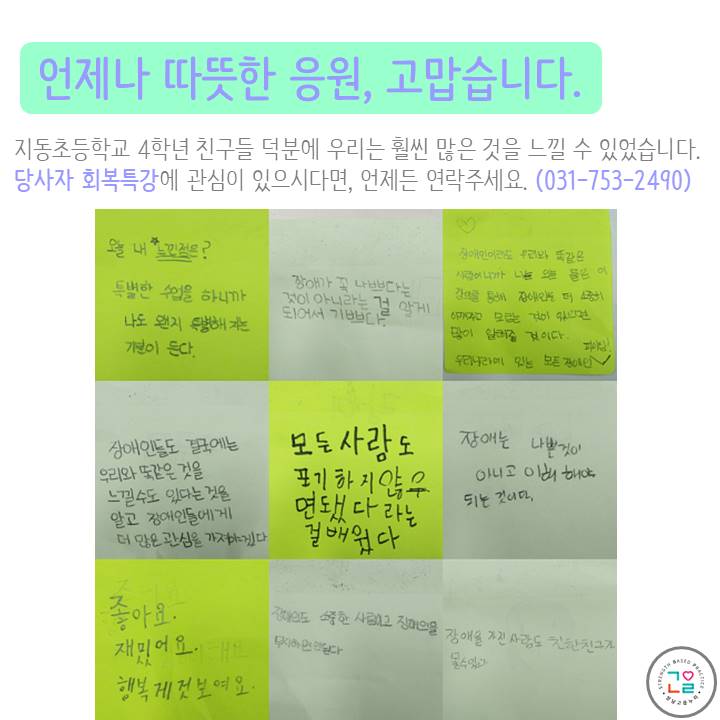 언제나 따뜻한 응원, 고맙습니다.
지동초등학교 4학년 친구들 덕분에 우리는 훨씬 많은 것을 느낄 수 있었습니다.
당사자 회복특강에 관심이 있으시다면, 언제든 연락주세요. (031-753-2490)
오늘 내 느낀점은?
특별한 수업을 하니까
나도 왠지 특별해지는
기분이 든다.
장애가 꼭 나쁘다는
것이 아니라는 걸 알게
되어서 기쁘다.
장애인이라도 우리와 똑같은
사람이니까 나는 오늘 들은 이
강의를 통해 장애인도 더 소중히
모르는 것이 있으면
많이 알려줄 것이다.
파이팅!
우리나라에 있는 모든 장애인
장애인들도 결국에는
우리와 똑같은 것을
느낄수도 있다는 것을
알고 장애인들에게
더 많은 관심을 가져야겠다
모든 사람도
포기하지 않으
면 됐다 라는
걸 배웠다
장애는 나쁜것이
아니고 이해 해야
되는 것이다.
좋아요.
재밌어요.
행복게 것 보여요.
장애인도 소중한 사람이고 장애인을
무시하면 안된다
장애를 가진 사람도 친한친구가
될수있다
STRENGTH BASED PRACTICE